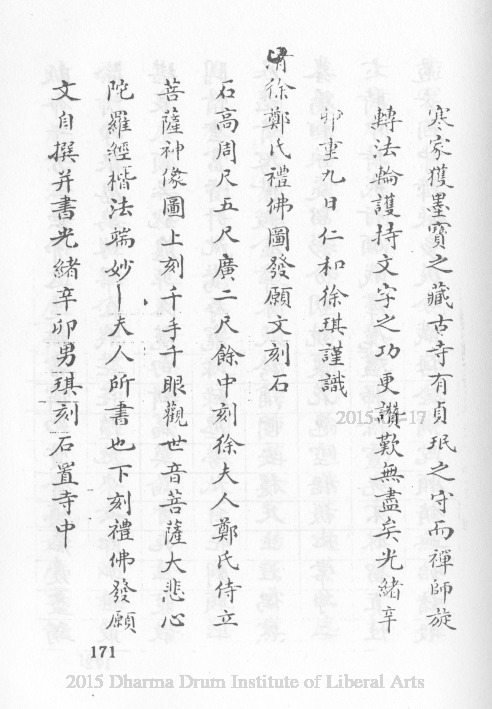 寒家獲墨寶之藏古寺有貞珉之守而禪師旋
轉法輪護持文字之功更讚歎無盡矣光緒辛
卯重九日仁和徐琪謹識
清徐鄭氏禮佛圖發願文刻石
石高周尺五尺廣二尺餘中刻徐夫人鄭氏侍立
菩薩神像圖上刻千手千眼觀世音菩薩大悲心
陀羅經楷法端妙夫人所書也下刻禮佛發願
文自撰并書光緒辛卯男琪刻石置寺中
171
2015 Dharma Drum Institute of Liberal Arts